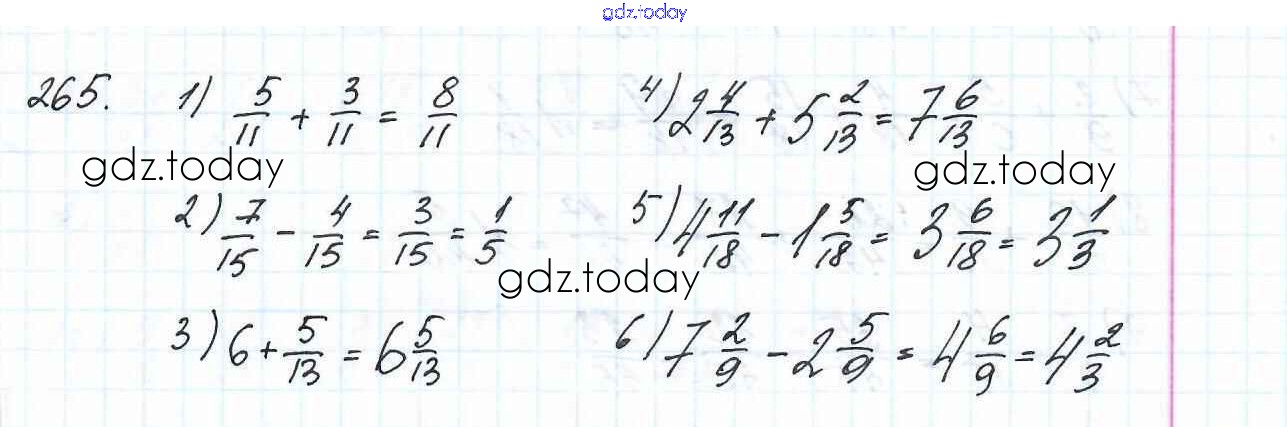 gdz.today
265. 1) 5/11 + 3/11 = 8/11
4) 2 4/13 + 5 2/13 = 7 6/13
gdz.today
gdz.today
2) 7/15 - 4/15 = 3/15 = 1/5
5) 4 11/18 - 1 5/18 = 3 6/18 = 3 1/3
gdz.today
3) 6 + 5/13 = 6 5/13
6) 7 2/9 - 2 5/9 = 4 6/9 = 4 2/3